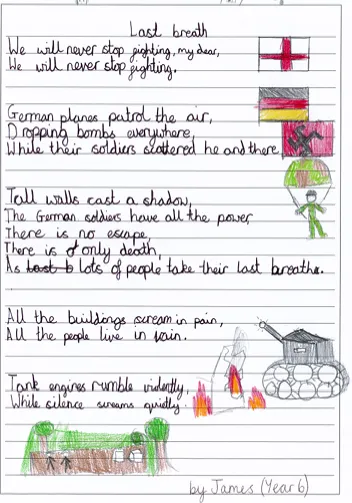 Last breath
We will never stop fighting, my dear,
We will never stop fighting.
German planes patrol the air,
Dropping bombs everywhere,
While their soldiers scattered he and there.
Tall walls cast a shadow,
The German soldiers have all the power,
There is no escape,
There is only death,
As lots of people take their last breaths.
All the buildings scream in pain,
All the people live in vain.
Tank engines rumble violently,
While silence screams quietly.
by James (Year 6)